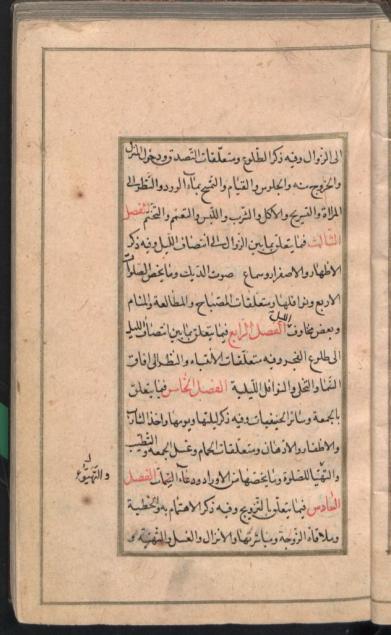 الى الزوال وفيه ذكر الطلوع ومتعلقات التصدق ودخول المنزل
والخروج منه والجلوس والقيام والتمسح بماء الورد والنظر الى
المرآة والتسريح والاكل والشرب واللبس والتعمم والتختم الفصل
الثالث فيما يتعلق بما بين الزوال الى انتصاف الليل وفيه ذكر
الاظهار والاصفرار وسماع صوت الديك وما يخص الصلوات
الاربع ونوافلها ومتعلقات المصباح والمطالعة والمنام
وبعض مخاوف الليل الفصل الرابع فيما يتعلق بما بين انتصاف الليل
الى طلوع الفجر وفيه متعلقات الانتباه والنظر الى افاق
السماء والتخلي والنوافل الليلية الفصل الخامس فيما يتعلق
بالجمعة وسائر الحنيفيات وفيه ذكر ليلتها ويومها واخذ الشارب
والاظفار والادهان ومتعلقات الحمام وغسل الجمعة والتطيب
والتهيأ للصلوة وما يخصها من الاوراد ودعاء السمات الفصل
والتهيؤ
السادس فيما يتعلق بالتزويج وفيه ذكر الاهتمام به والخطبة
وملاقاة الزوجة ومباشرتها والانزال والغسل والتهنية و